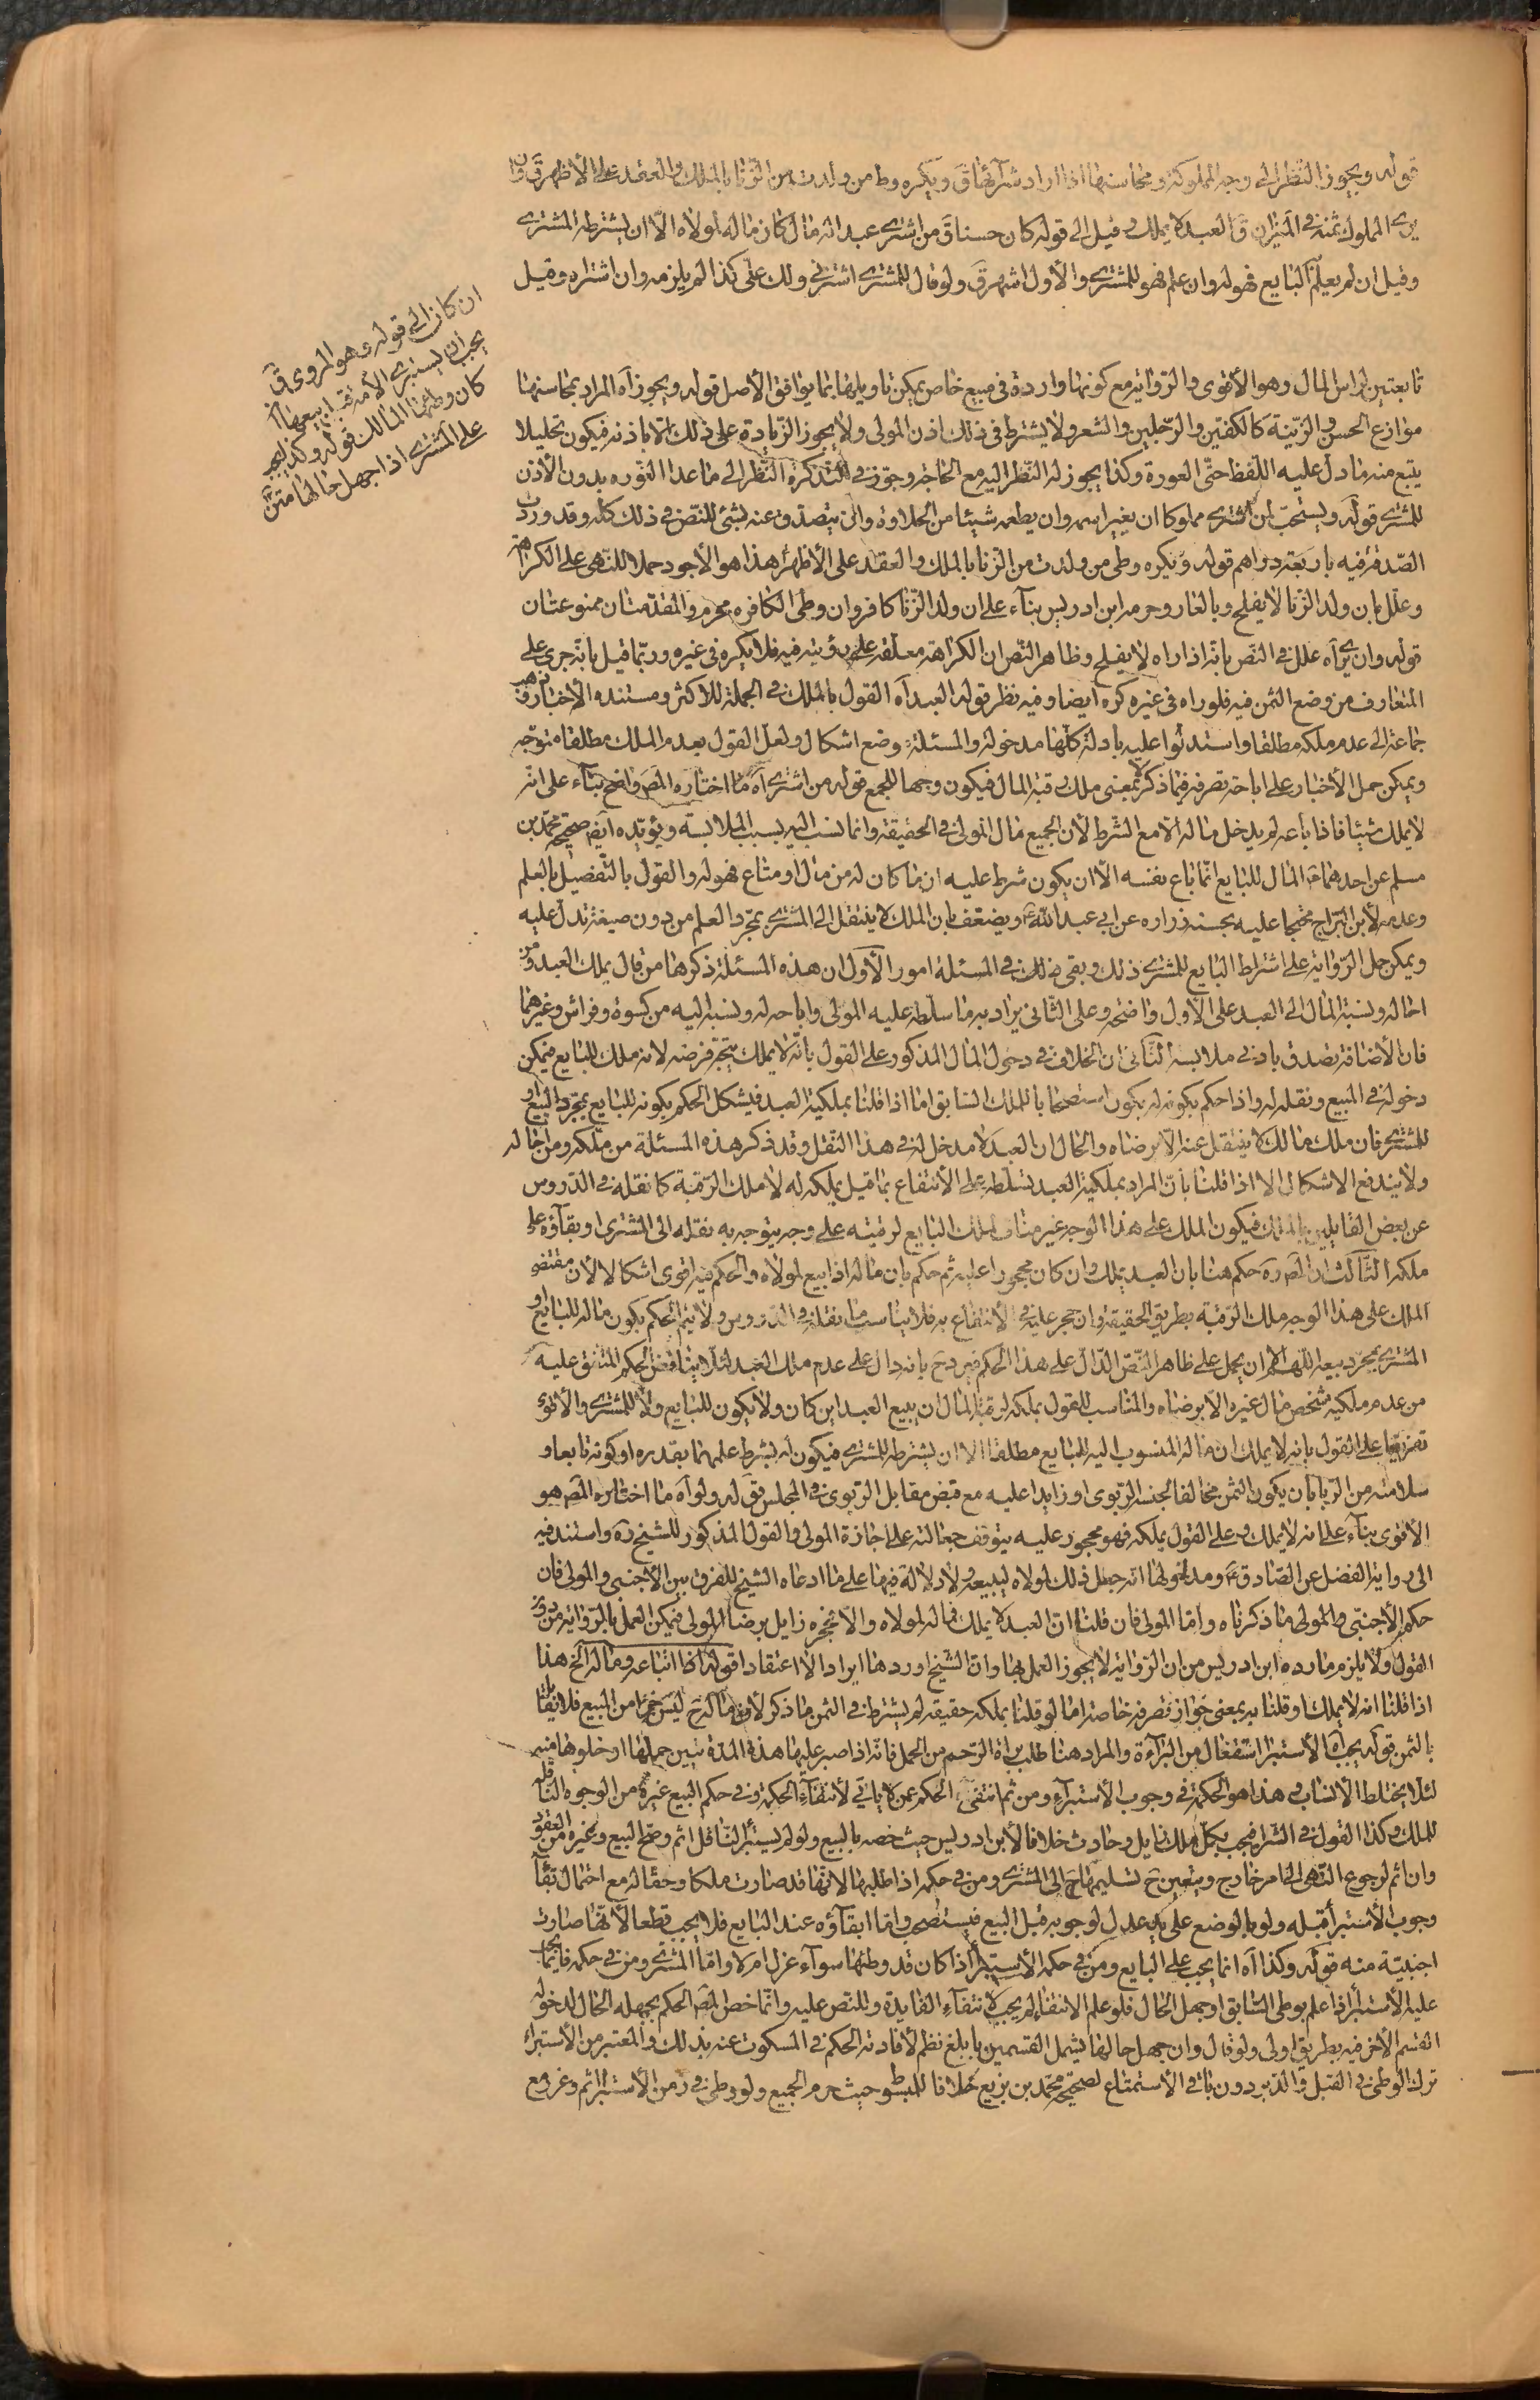 قوله ويجوز النظر الى وجه المملوكة ومحاسنها اذا اراد شرآئها ق ويكره وطى من ولدت من الزنا بالملك والعقد على الأظهر ق وان
يرى المملوك ثمنه فى الميزان ق العبد لا يملك وقيل الى قوله كان حسنا ق من اشترى عبدا له مال كان ماله لمولاه الّا ان يشترطه المشترى
وقيل ان لم يعلم البايع فهو له وان علم فهو للمشترى والأول اشهر ق ولو قال للمشترى اشترنى ولك علىّ كذا لم يلزمه وان اشتراه وقيل
ان كان الى قوله وهو المروى ق
يجب ان يستبرى الأمة قبل بيعها اذا
كان وطئها المالك قوله وكذا يجب
على المشترى اذا جهل حالها متن
تابعتين لراس المال وهو الأقوى والرواية مع كونها واردة فى مبيع خاص يمكن تاويلها بما يوافق الأصل قوله ويجوز آه المراد بمحاسنها
مواضع الحسن والزينة كالكفين والرجلين والشعر ولا يشترط فى ذلك اذن المولى ولا يجوز الزيادة على ذلك الّا باذنه فيكون تحليلا
يتبع منه ما دل عليه اللفظ حتى العورة وكذا يجوز له النظر اليه مع الحاجة وجوز فى التذكرة النظر الى ما عدا العورة بدون الأذن
للمشترى قوله ويستحب لمن اشترى مملوكا ان يغير اسمه وان يطعمه شيئا من الحلاوة وان يتصدق عنه بشئ للنص فى ذلك كله وقد ورد
الصدقة فيه باربعة دراهم قوله ويكره وطى من ولدت من الزنا بالملك والعقد على الأظهر هذا هو الأجود حملا للنهى على الكراهة
وعلل بان ولد الزنا لا يفلح وبالعار وحرمه ابن ادريس بناء على ان ولد الزنا كافر وان وطى الكافره محرم والمقدمتان ممنوعتان
قوله وان يرى آه علل فى النص بانه اذا راه لا يفلح وظاهر النص ان الكراهة معلقة على رؤيته فيه فلا يكره فى غيره وربما قيل بانه جرى على
المتعارف من وضع الثمن فيه فلو راه فى غيره كره ايضا وفيه نظر قوله العبد آه القول بالملك فى الجملة للاكثر ومستنده الأخبار وذهب
جماعة الى عدم ملكه مطلقا واستدلوا عليه بادلة كلها مدخولة والمسئلة موضع اشكال ولعل القول بعدم الملك مطلقا متوجه
ويمكن حمل الأخبار على اباحة تصرفه فيما ذكر لا بمعنى ملك رقبة المال فيكون وجها للجمع قوله من اشترى آه ما اختاره المص واضح بناء على انه
لا يملك شيئا فاذا باعه لم يدخل ماله الّا مع الشرط لأن الجميع مال المولى فى الحقيقة وانما نسب اليه بسبب الملابسة ويؤيده ايضا صحيحة محمد بن
مسلم عن احدهما ع المال للبايع انما باع نفسه الّا ان يكون شرط عليه ان ما كان له من مال او متاع فهو له والقول بالتفصيل بالعلم
وعدمه لأبن البراج محتجا عليه بحسنة زراره عن ابى عبد الله ع ويضعف بان الملك لا ينتقل الى المشترى بمجرد العلم من دون صيغة تدل عليه
ويمكن حمل الرواية على اشتراط البايع للمشترى ذلك وبقى فى المسئلة امور الأول ان هذه المسئلة ذكرها من قال بملك العبد ومن
احاله ونسبة المال الى العبد على الأول واضحه وعلى الثانى يراد به ما سلطه عليه المولى واباحه له ونسبه اليه من كسوة وفراش وغيرهما
فان الأضافة تصدق بادنى ملابسه الثانى ان الخلاف فى دخول المال المذكور على القول بانه لا يملك يتجه فرضه لانه ملك للبايع فيمكن
دخوله فى المبيع ونقله له واذا حكم بكونه له يكون استصحابا للملك السابق اما اذا قلنا بملكية العبد فيشكل الحكم بكونه للبايع بمجرد البيع او
للمشترى فان ملك مالك لا ينتقل عنه الّا برضاه والحال ان العبد لا مدخل له فى هذا النقل وقد ذكر هذه المسئلة من ملكه ومن احاله
ولا يندفع الاشكال الا اذا قلنا بان المراد بملكية العبد تسلطه على الأنتفاع بما قيل بملكه له لا ملك الرقبة كما نقله فى الدروس
عن بعض القايلين بالملك فيكون الملك على هذا الوجه غير مناف لملك البايع لرقبته على وجه يتوجه به نقله الى المشترى او بقاؤه على
ملكه الثالث ان المص ره حكم هنا بان العبد يملك وان كان محجورا عليه ثم حكم بان ماله اذا بيع لمولاه والحكم فيه اقوى اشكالا لأن مقتضى
الملك على هذا الوجه ملك الرقبة بطريق الحقيقة وان حجر عليه فى الأنتفاع به فلا يناسب ما نقله فى الدروس ولا يتم الحكم بكون ماله للبايع او
المشترى بمجرد بيعه اللهم الّا ان يحمل على ظاهر النص الدال على هذا الحكم فيرد ح بانه دال على عدم ملك العبد لئلا يناقض الحكم المتفق عليه
من عدم ملكية شخص مال غيره الّا برضاه والمناسب للقول بملكه لرقبة المال ان يبيع العبد اين كان ولا يكون للبايع ولا للمشترى والأقوى
تفريعا على القول بانه لا يملك ان ماله المنسوب اليه للبايع مطلقا الا ان يشترطه للمشترى فيكون له بشرط علمهما بقدره او كونه تابعا و
سلامته من الربا بان يكون الثمن مخالفا لجنسه الربوى او زايدا عليه مع قبض مقابل الربوى فى المجلس قوله ولو آه ما اختاره المص هو
الأقوى بناء على انه لا يملك وعلى القول بملكه فهو محجور عليه يتوقف جعالته على اجازة المولى والقول المذكور للشيخ ره واستند فيه
الى رواية الفضل عن الصادق ع ومدلولها انه جعل ذلك لمولاه ليبيعه ولا دلالة فيها على ما ادعاه الشيخ للفرق بين الأجنبى والمولى فان
حكم الأجنبى والمولى ما ذكرناه واما المولى فان قلنا ان العبد لا يملك فماله لمولاه والّا فحجره زايل برضا المولى فيمكن العمل بالرواية من دون
القول ولا يلزم ما رده ابن ادريس من ان الرواية لا يجوز العمل بها وان الشيخ اوردها ايرادا لا اعتقادا قوله اذا ابتاعه وماله الخ هذا
اذا قلنا انه لا يملك او قلنا به بمعنى جواز تصرفه خاصة اما لو قلنا بملكه حقيقه لم يشترط فى الثمن ما ذكر لأن ماله ح ليس جزءا من المبيع فلا يقابل
بالثمن قوله يجب آه الأستبرا استفعال من البرآءة والمراد هنا طلب براءة الرحم من الحمل فانه اذا صبر عليها هذه المدة تبين حملها او خلوها منه
لئلا يختلط الأنساب هذا هو الحكمة فى وجوب الأستبرآء ومن ثم انتفى الحكم عمن لا ياتى لأنتفآء الحكمة وفى حكم البيع غيره من الوجوه الناقلة
للملك وكذا القول فى الشراء فيجب بكل ملك زايل وحادث خلافا لأبن ادريس حيث خصه بالبيع ولو لم يستبرئ الناقل اثم وصح البيع وغيره من العقود
وان اثم لرجوع النهى الى امر خارج ويتعين ح تسليمها الى المشترى ومن فى حكمه اذا طلبها لانها قد صارت ملكا وحقا له مع احتمال بقآء
وجوب الأستبرا قبله ولو بالوضع على يد عدل لوجوبه قبل البيع فيستصحب واما ابقآؤه عند البايع فلا يجب قطعا لأنها صارت
اجنبية منه قوله وكذا آه انما يجب على البايع ومن فى حكمه الأستبرا اذا كان قد وطئها سوآء عزل ام لا واما المشترى ومن فى حكمه فانما يجب
عليه الأستبرا اذا علم بوطى السابق او جهل الحال فلو علم الانتفاء لم يجب لأنتفاء الفايدة وللنص عليه وانما خص المص الحكم بجهله الحال لدخول
القسم الأخر فيه بطريق اولى ولو قال وان جهل حالها يشمل القسمين بابلغ نظم لأفادته الحكم فى المسكوت عنه بذلك والمعتبر من الأستبراء
ترك الوطى فى القبل والدبر دون باقى الأستمتاع لصحيحة محمد بن بزيع خلافا للمبسوط حيث حرم الجميع ولو وطى فى زمن الأستبرا اثم وعزر مع